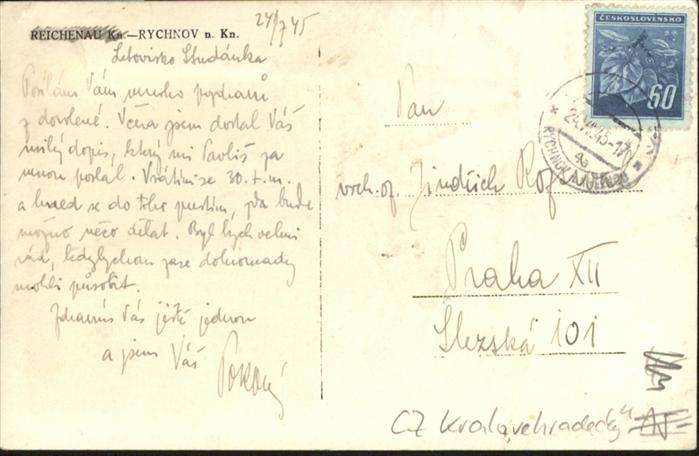 24/7 45
REICHENAU Kn.—RYCHNOV n. Kn.
Letovisko Studánka
Posílám Vám mnoho pozdravů
z dovolené. Včera jsem dostal Váš
milý dopis, který mi Pavliš za
mnou poslal. Vrátím se 30. t. m.
a hned se do toho pustím, 
bude
možno něco dělat. Byl bych velmi
rád, kdybychom zase dohromady
mohli působit.
Zdravím Vás ještě jednou
a jsem Váš
Pokorný
ČESKOSLOVENSKO
60
Pan
vrch. of. Jindřich
Praha XII
Slezská 101
CZ Královehradecký